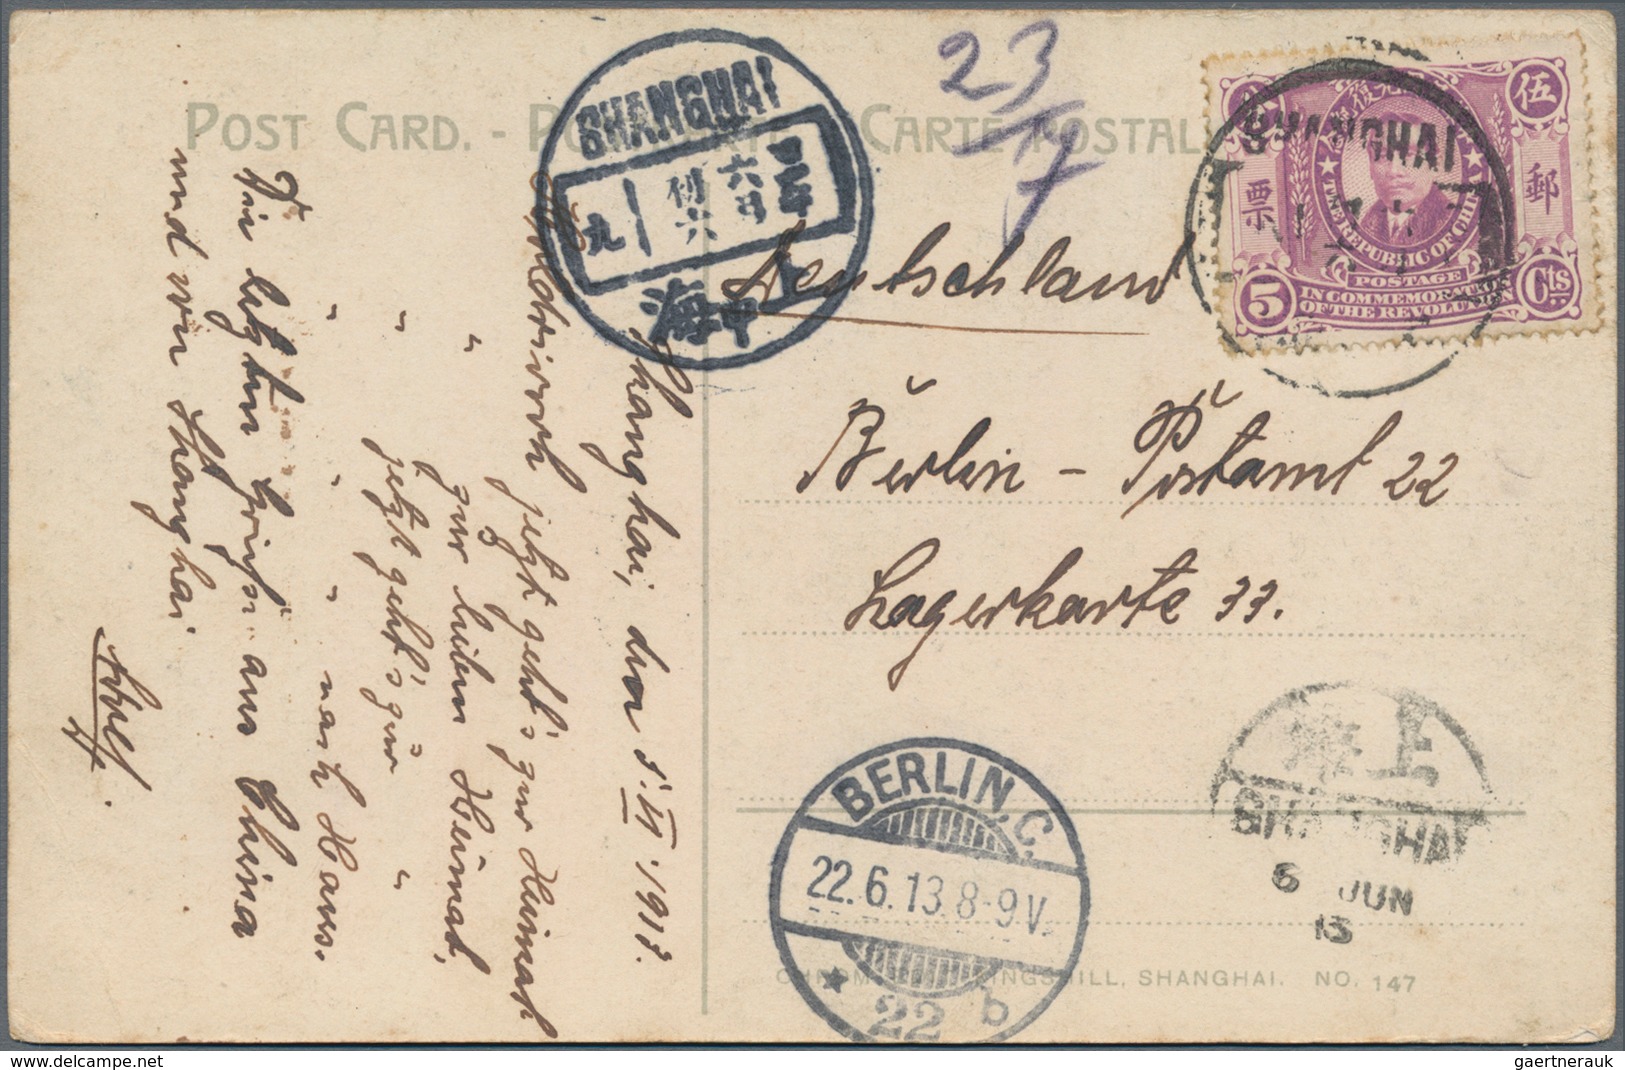 POST CARD. -
CARTE POSTAL
23/17
SHANGHAI
九 六
海
SHANGHAI
伍
郵
票
THE REPUBLIC OF CHINA
POSTAGE
IN COMMEMORATION
OF THE REVOLUTION
5 Cts
Deutschland
Berlin - Postamt 22
Lagerkarte 33.
Shanghai, den 5. VI. 1913.
jetzt geht's zur Heimath
zur lieben Heimat,
jetzt geht's zur "
" " " nach Haus.
Die letzten Grüße aus China
und von Shanghai
BERLIN. C.
22.6.13.8-9V.
* 22 b
上海
SHANGHAI
6 JUN
13
HILL, SHANGHAI. NO. 147
delcampe.net
gaertnerauk